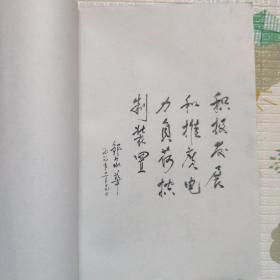 积极发展
和推广电
力负荷控
制装置